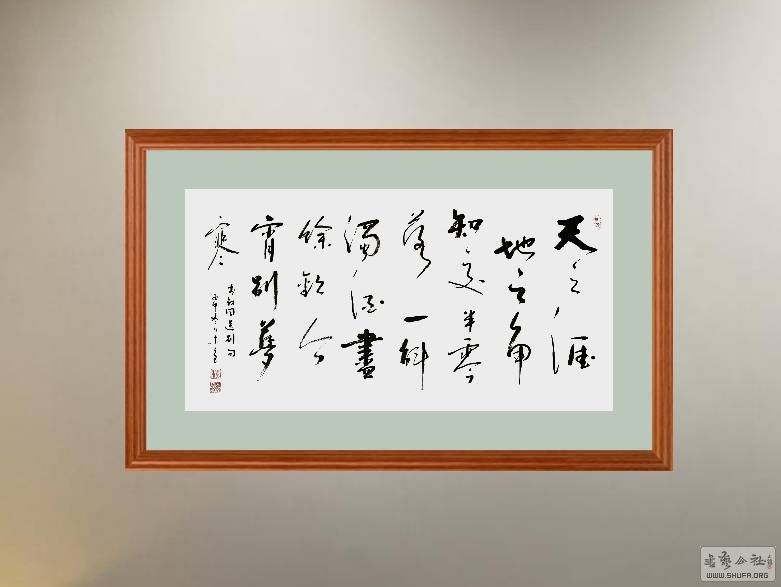 天之涯
地之角
知交半零
落一斛
濁酒盡
餘歡今
宵别夢
寒
李叔同送别句
书艺公社
WWW.SHUFA.ORG